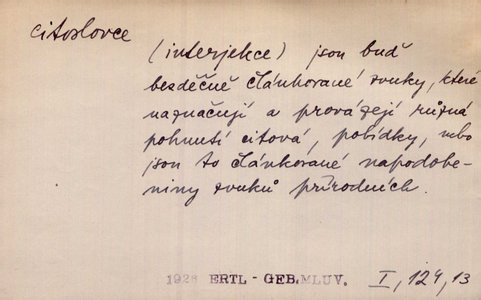 citoslovce
(interjekce) jsou buď
bezděčně článkované zvuky, které
naznačují a provázejí různá
pohnutí citová, pobídky, nebo
jsou to článkované napodobe-
niny zvuků přírodních.
1926 ERTL - GEB.MLUV. I, 124, 13